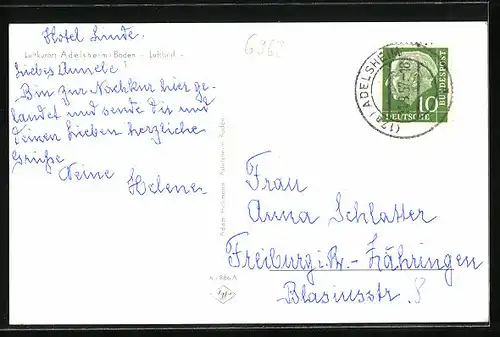 Hotel Linde.
Luftkurort Adelsheim / Baden - Luftbild -
Liebes Annele!
Bin zur Nachkur hier ge-
landet und sende Dir und
Deinen Lieben herzliche
Grüße
Deine
Helene
6362
(17a) ADELSHEIM
10
DEUTSCHE
BUNDESPOST
Frau
Anna Schlatter
Freiburg i. Br.- Zähringen
Blasiusstr. 8
Adelsheim / Baden